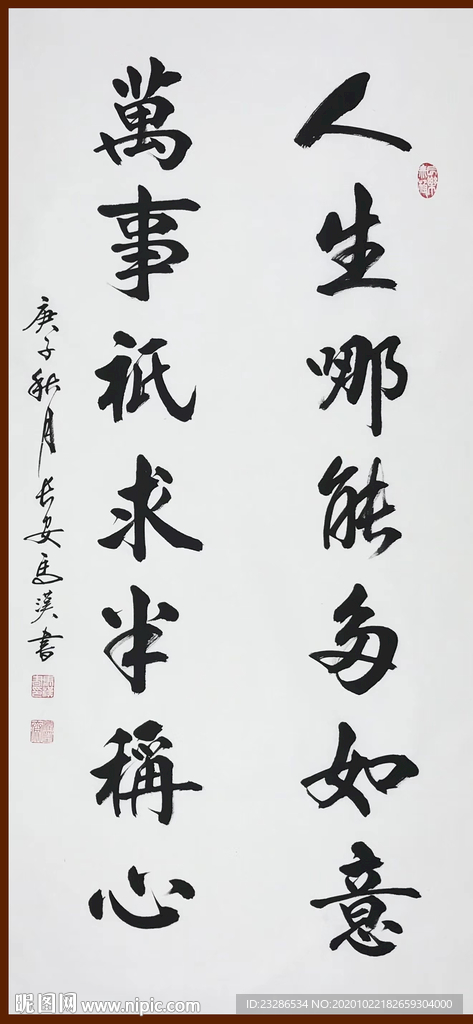 人生哪能多如意
萬事祇求半稱心
庚子秋月長安馬漢書
昵图网 www.nipic.com
ID:23286534 NO:20201022182659304000